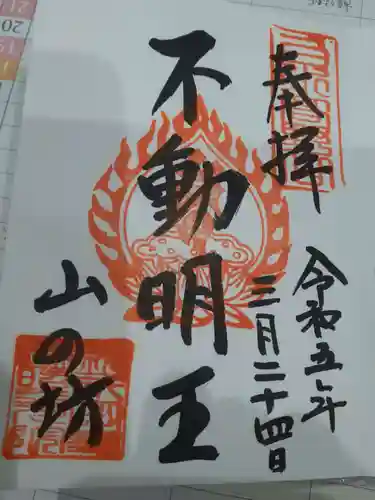 奉拝
令和五年
三月二十四日
不動明王
山の坊